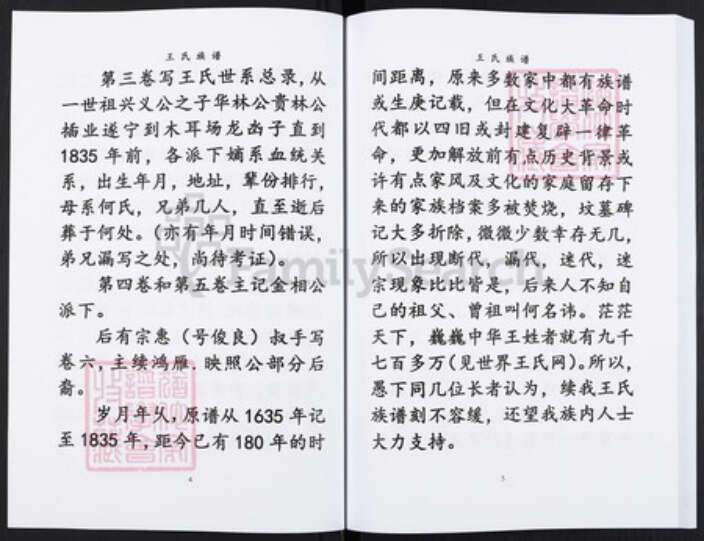 王氏族谱
第三卷写王氏世系总录,从
一世祖兴义公之子华林公贵林公
插业遂宁到木耳场龙凼子直到
1835年前，各派下嫡系血统关
系，出生年月，地址，辈份排行，
母系何氏，兄弟几人，直至逝后
葬于何处。(亦有年月时间错误，
弟兄漏写之处，尚待考证)。
第四卷和第五卷主记金相公
派下。
后有宗惠（号俊良）叔手写
卷六，主续鸿雁．映照公部分后
裔。
岁月年久，原谱从1635年记
至1835年，距今已有180年的时
4
王氏族谱
间距离，原来多数家中都有族谱
或生庚记载，但在文化大革命时
代都以四旧或封建复辟一律革
命，更加解放前有点历史背景或
许有点家风及文化的家庭留存下
来的家族档案多被焚烧，坟墓碑
记大多折除，微微少数幸存无几，
所以出现断代，漏代，迷代，迷
宗现象比比皆是，后来人不知自
己的祖父、曾祖叫何名讳。茫茫
天下，巍巍中华王姓者就有九千
七百多万(见世界王氏网)。所以，
愚下同几位长者认为，续我王氏
族谱刻不容缓，还望我族内人士
大力支持。
5
FamilySearch